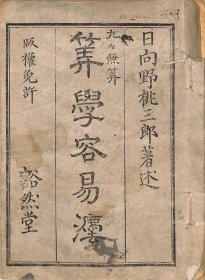 日向野桃三郎著述
九々無算
筭學容易溼
版權免許
谿然堂